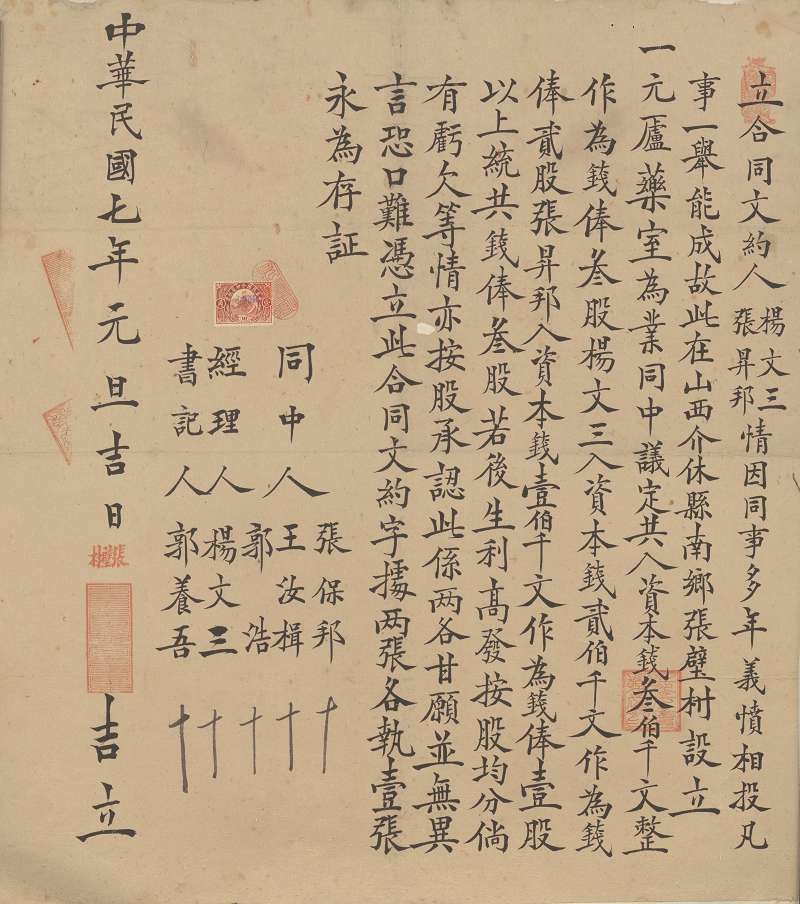 立合同文約人楊文三張昇邦情因同事多年義憤相投凡
事一舉能成故此在山西介休縣南鄉張壁村設立
一元廬藥室為業同中議定共入資本錢叁伯千文整
作為錢俸叁股楊文三入資本錢貳伯千文作為錢
俸貳股張昇邦入資本錢壹伯千文作為錢俸壹股
以上統共錢俸叁股若後生利高發按股均分倘
有虧欠等情亦按股承認此係两各甘願並無異
言恐口難憑立此合同文約字據两張各執壹張
永為存証
同中人 張保邦 十
王汝楫 十
郭浩 十
經理人 楊文三 十
書記人 郭養吾 十
中華民國七年元旦吉日 吉立